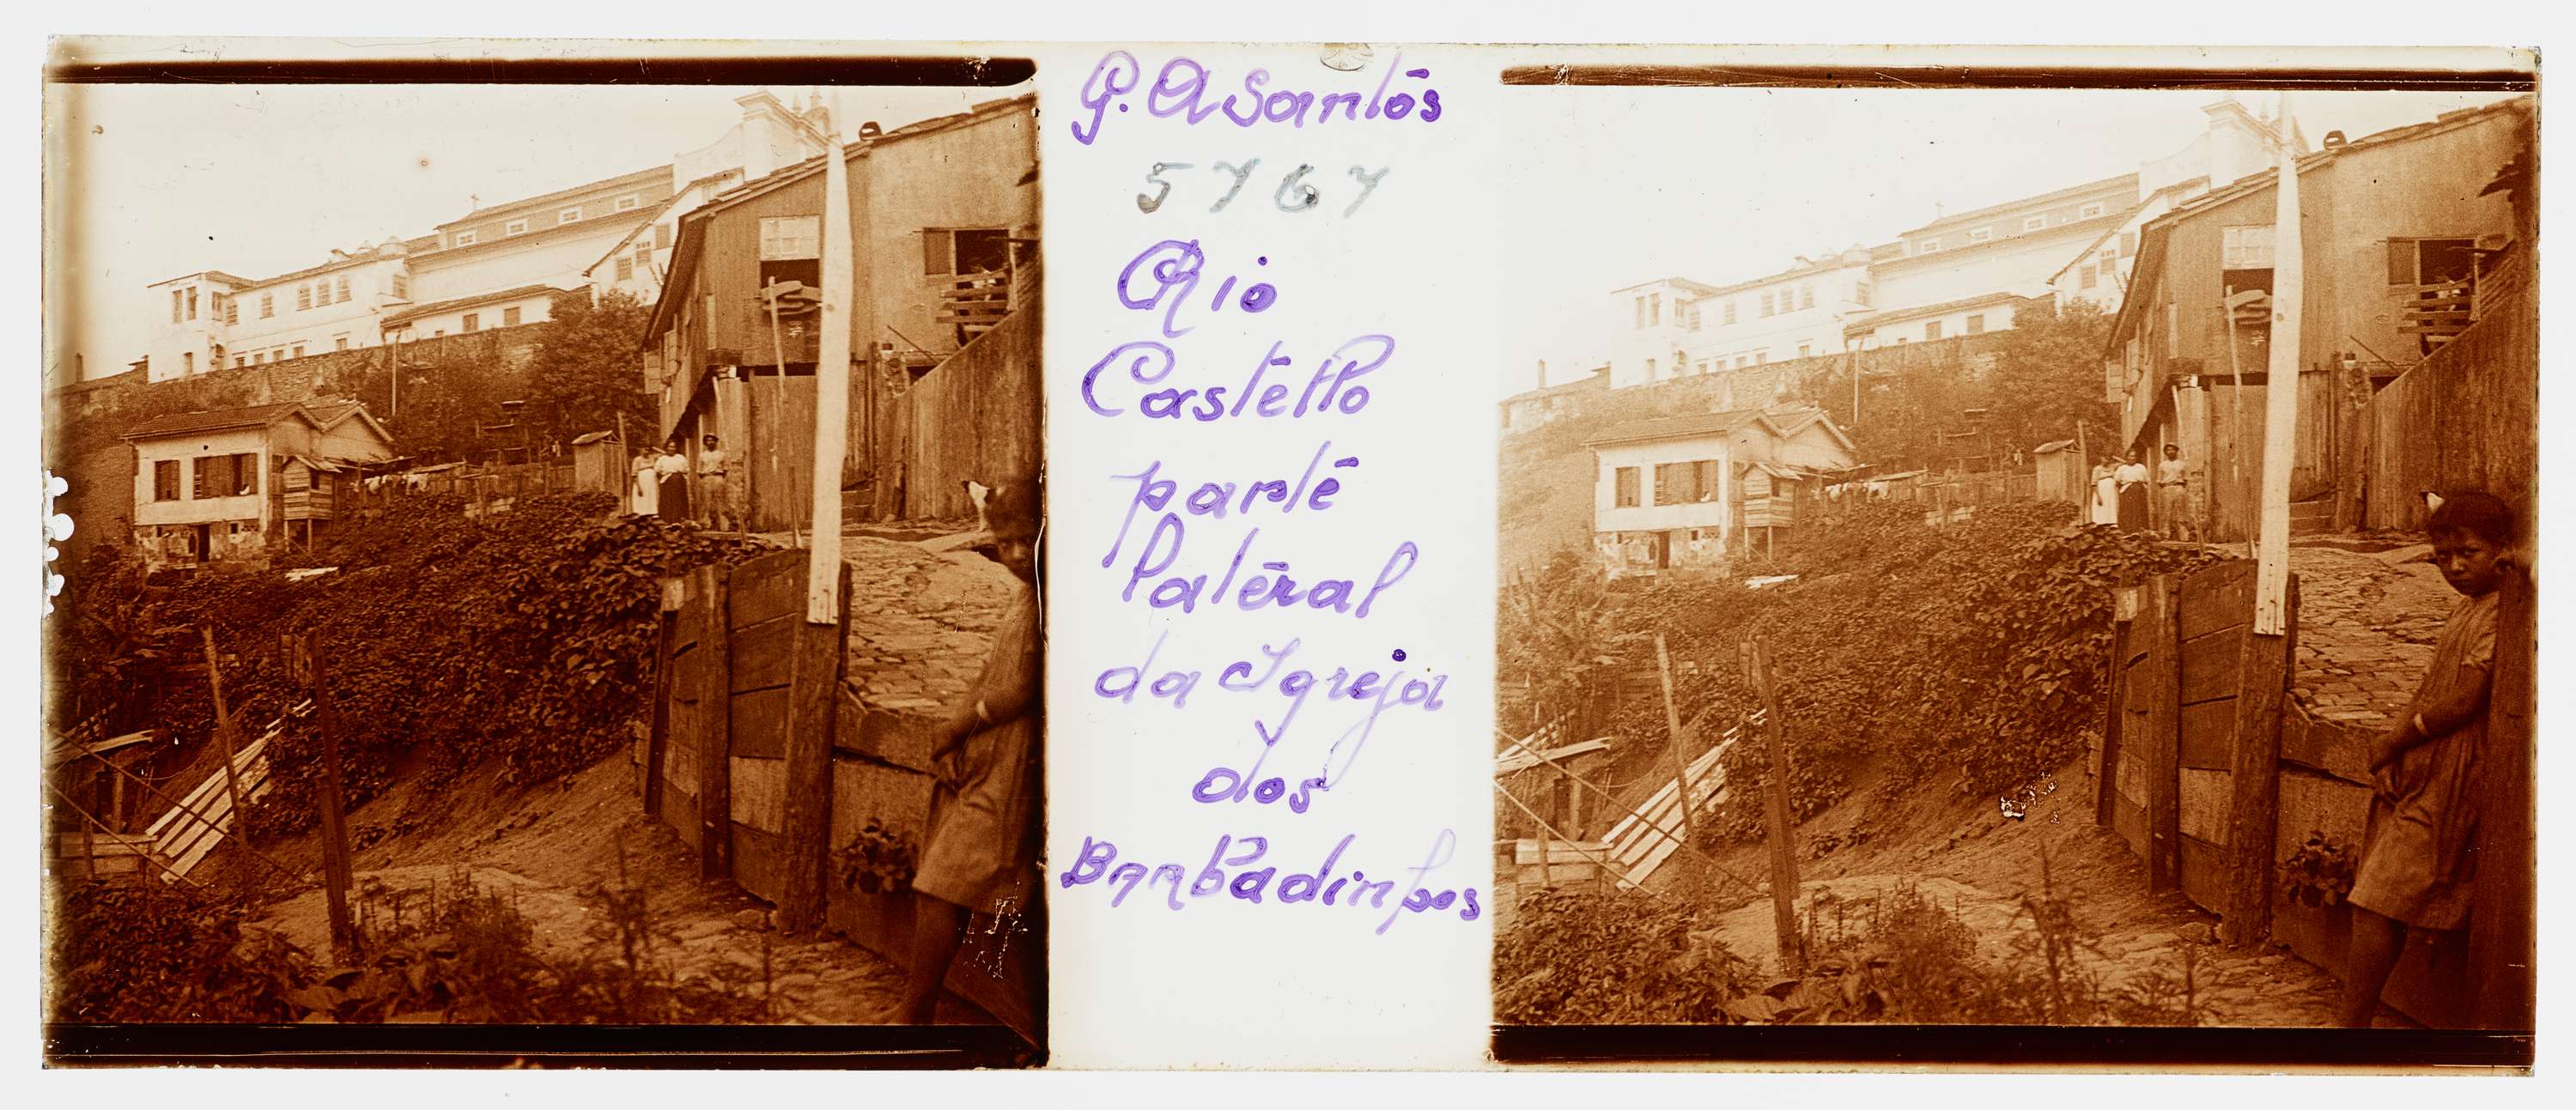 G. A Santos
5767
Rio
Castello
parte
lateral
da Igreja
dos
Barbadinhos